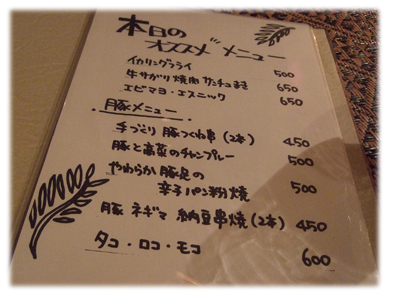 本日の
オススメメニュー
イカリングフライ 500
牛サガリ焼肉サンチュまき 650
エビマヨ・エスニック 650
豚メニュー
手づくり 豚つくね串(2本) 450
豚と高菜のチャンプレー 500
やわらか豚足の
辛子パン粉焼 500
豚ネギマ 納豆串焼(2本) 450
タコ・ロコ・モコ 600